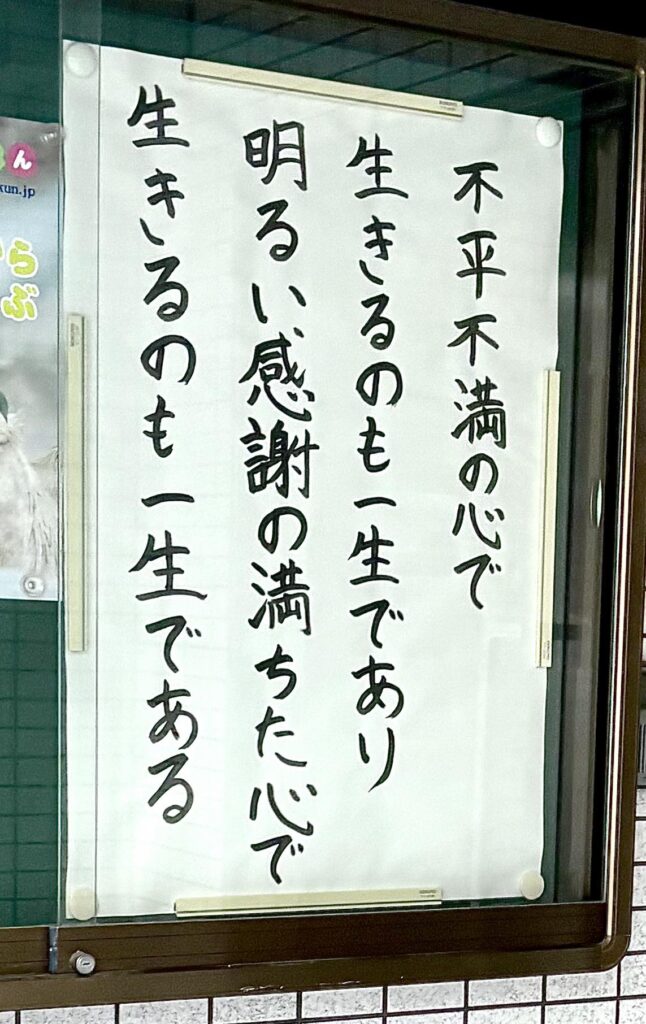 不平不満の心で
生きるのも一生であり
明るい感謝の満ちた心で
生きるのも一生である
ん
kun.jp
ら
ぶ